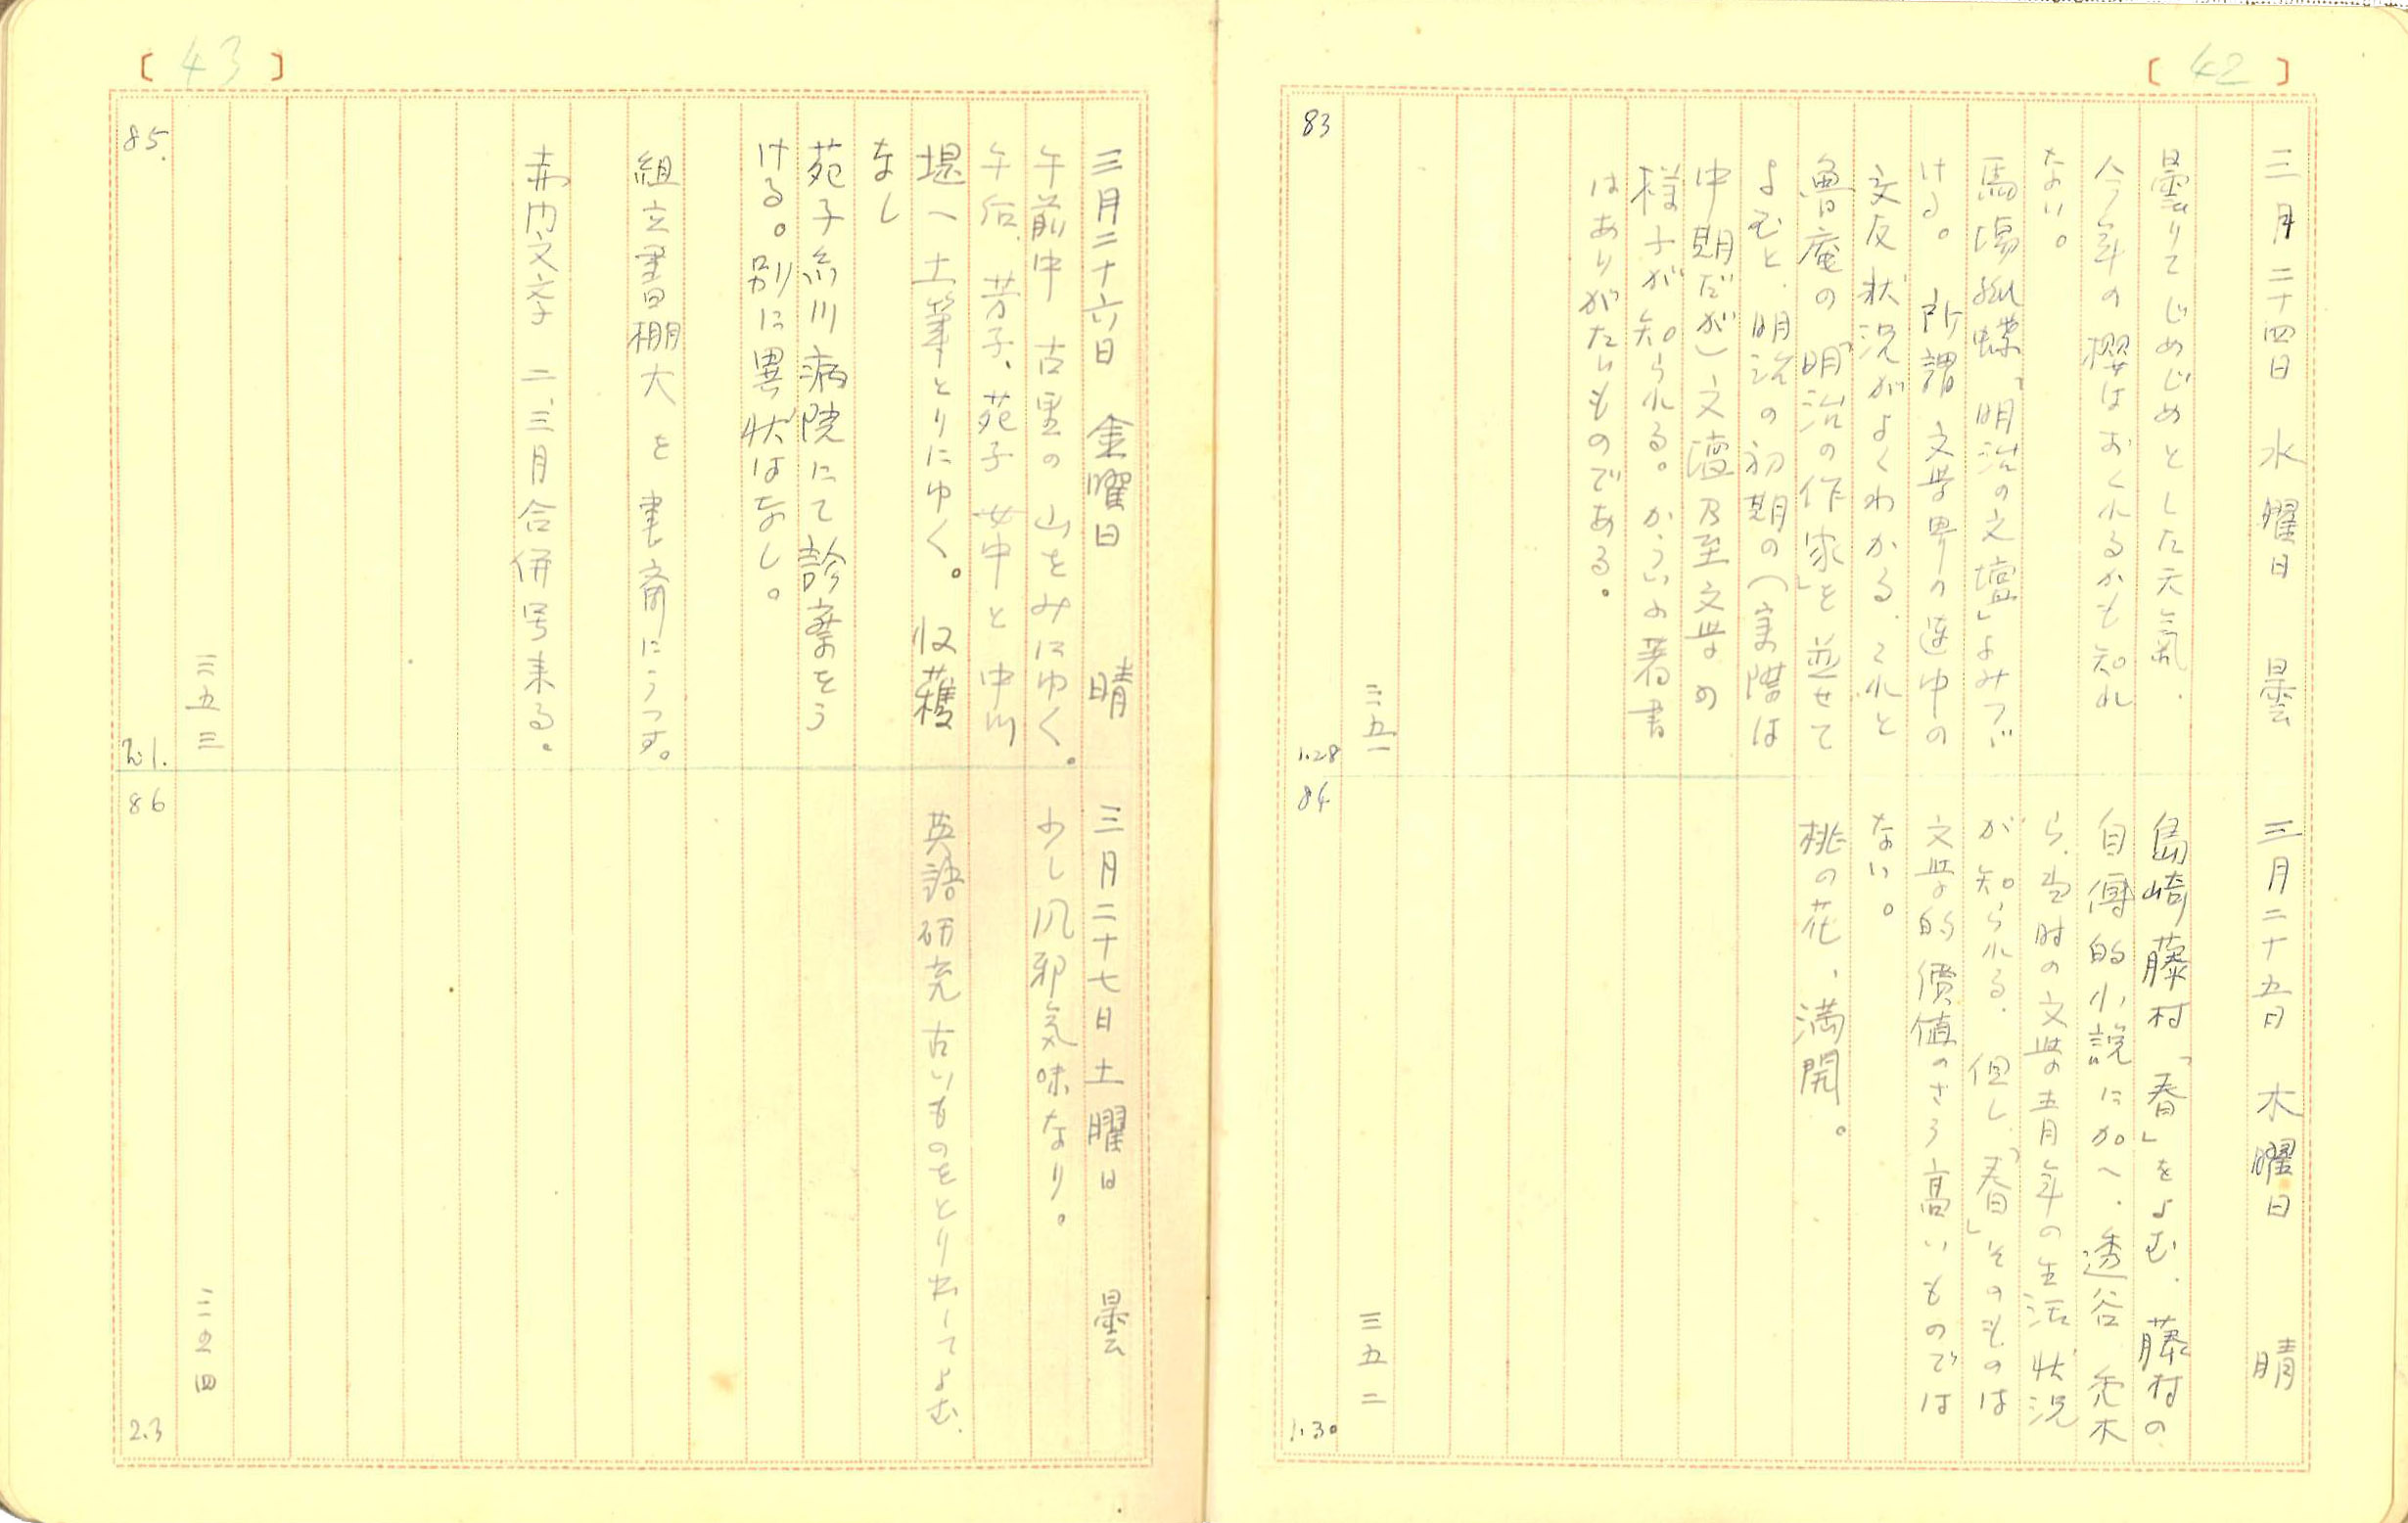 [42]
三月二十四日 水曜日 曇
曇りてじめじめとした天氣.
今年の櫻はおくれるかも知れ
ない。
馬場孤蝶「明治の文壇」よみつゞ
ける。所謂文学界の連中の
交友状況がよくわかる.これと
魯庵の「明治の作家」を並せて
よむと、明治の初期の(実際は
中期だが)文壇乃至文学の
様子が知られる。かういふ著書
はありがたいものである。
三五一
83
1.28
三月二十五日 木曜日 晴
島崎藤村「春」をよむ.藤村の
自傳的小説に加へ.透谷 禿木
ら.当时の文学青年の生活状況
が知られる.但し.「春」そのものは
文学的價値のさう高いものでは
ない。
桃の花、満開。
三五二
84
1.30
[43]
三月二十六日 金曜日 晴
午前中 古里の山をみにゆく。
午后.芳子、苑子 女中と 中川
堤へ土筆とりにゆく。収穫
なし
苑子糸川病院にて診察をう
ける。別に異状はなし。
組立書棚大を書斎にうつす。
赤門文学 二、三月合併号来る。
三五三
85.
2.1.
三月二十七日 土曜日 曇
少し风邪気味なり。
英語研究古いものをとり出してよむ.
三五四
86
2.3